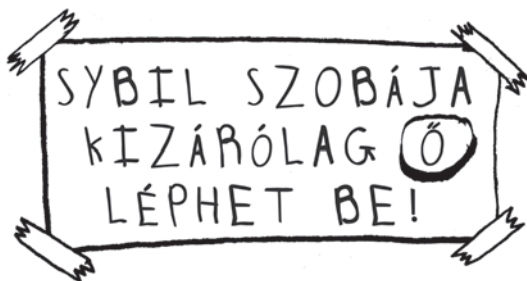 SYBIL SZOBÁJA
KIZÁRÓLAG Ő
LÉPHET BE!